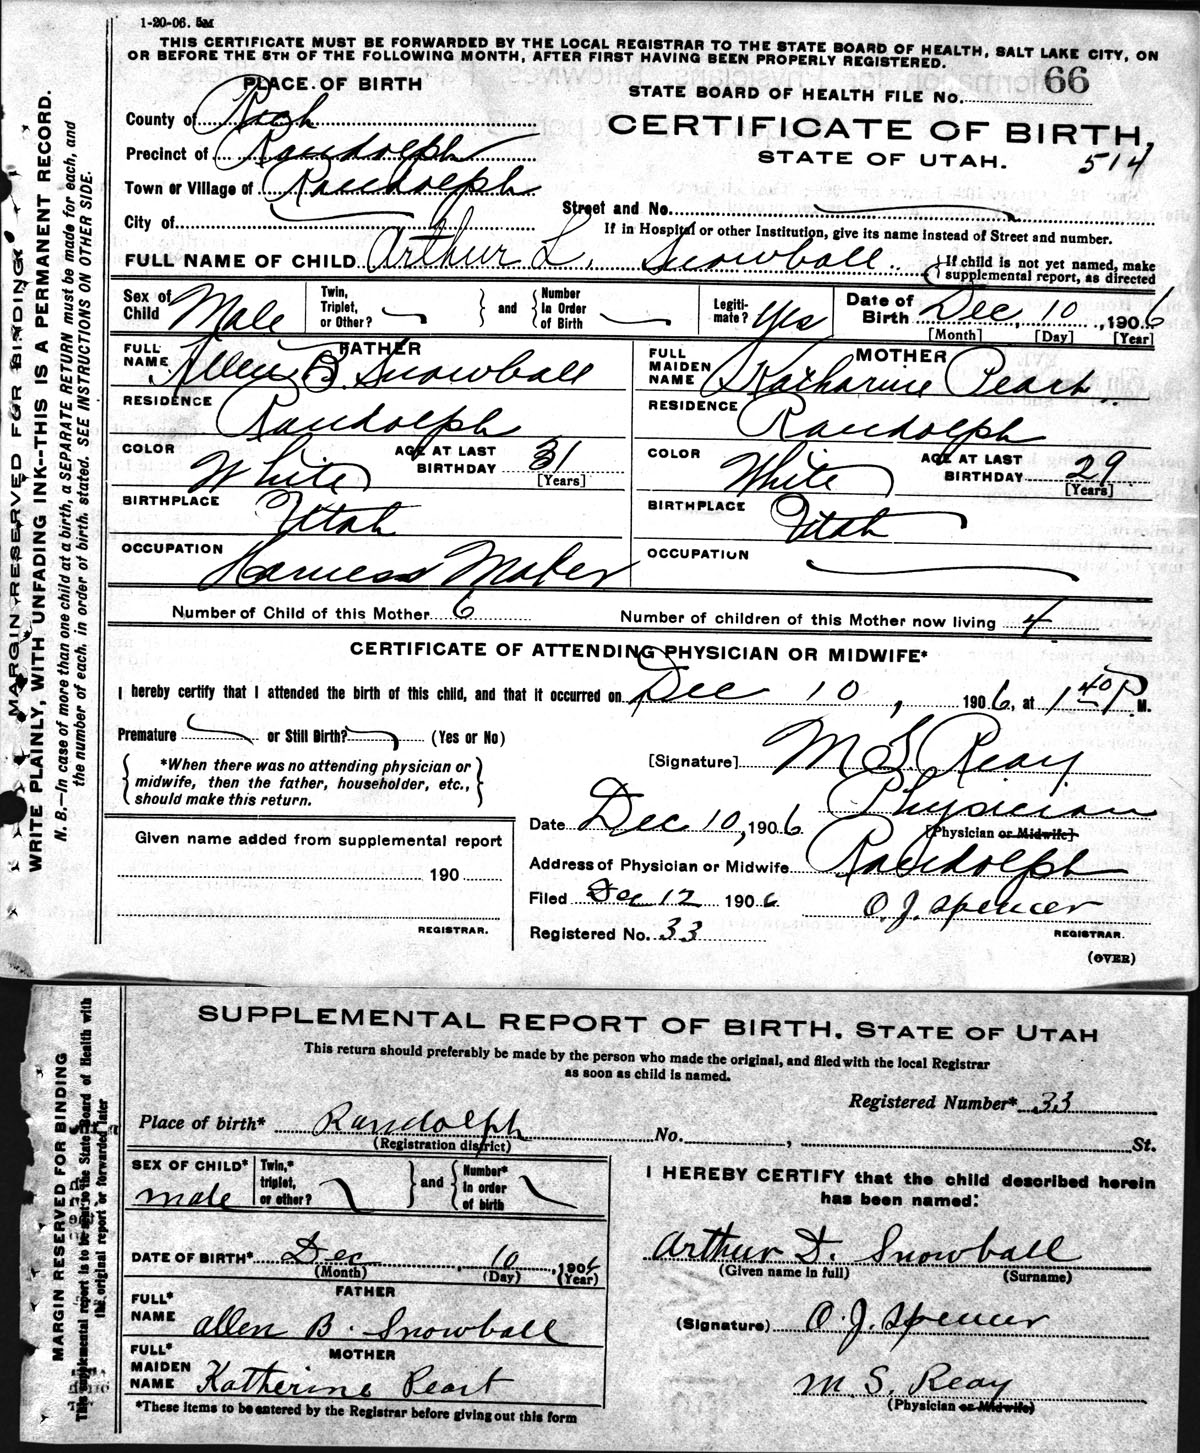 1-20-06. 5M
THIS CERTIFICATE MUST BE FORWARDED BY THE LOCAL REGISTRAR TO THE STATE BOARD OF HEALTH, SALT LAKE CITY, ON
OR BEFORE THE 5TH OF THE FOLLOWING MONTH, AFTER FIRST HAVING BEEN PROPERLY REGISTERED.
PLACE OF BIRTH
STATE BOARD OF HEALTH FILE No. 66
County of Rich
CERTIFICATE OF BIRTH,
Precinct of Randolph
STATE OF UTAH. 514
Town or Village of Randolph
City of
Street and No.
If in Hospital or other Institution, give its name instead of Street and number.
FULL NAME OF CHILD Arthur L. Snowball
{If child is not yet named, make
supplemental report, as directed
Sex of Child Male
Twin, Triplet, or Other? } and { Number in Order of Birth
Legitimate? Yes
Date of Birth Dec 10, 1906
[Month] [Day] [Year]
FATHER
FULL NAME Allen B. Snowball
RESIDENCE Randolph
COLOR White AGE AT LAST BIRTHDAY 31 [Years]
BIRTHPLACE Utah
OCCUPATION Harness Maker
MOTHER
FULL MAIDEN NAME Katharine Peart
RESIDENCE Randolph
COLOR White AGE AT LAST BIRTHDAY 29 [Years]
BIRTHPLACE Utah
OCCUPATION
Number of Child of this Mother 6 Number of children of this Mother now living 4
CERTIFICATE OF ATTENDING PHYSICIAN OR MIDWIFE*
I hereby certify that I attended the birth of this child, and that it occurred on Dec 10, 1906, at 1 40 P M.
Premature or Still Birth? (Yes or No)
{*When there was no attending physician or
midwife, then the father, householder, etc.,
should make this return.}
[Signature] M. S. Reay
Physician
Date Dec 10, 1906 [Physician or Midwife]
Address of Physician or Midwife Randolph
Filed Dec 12 1906 O. J. Spencer
REGISTRAR.
Registered No. 33
(OVER)
Given name added from supplemental report
190
REGISTRAR.
MARGIN RESERVED FOR BINDING
WRITE PLAINLY, WITH UNFADING INK--THIS IS A PERMANENT RECORD.
N. B.—In case of more than one child at a birth, a SEPARATE RETURN must be made for each, and
the number of each, in order of birth, stated. SEE INSTRUCTIONS ON OTHER SIDE.
SUPPLEMENTAL REPORT OF BIRTH, STATE OF UTAH
This return should preferably be made by the person who made the original, and filed with the local Registrar
as soon as child is named.
Registered Number* 33
Place of birth* Randolph No. , St.
(Registration district)
SEX OF CHILD* male
Twin,* triplet, or other? } and { Number* in order of birth
DATE OF BIRTH* Dec 10, 1906
(Month) (Day) (Year)
FATHER
FULL* NAME Allen B. Snowball
MOTHER
FULL* MAIDEN NAME Katherine Peart
*These items to be entered by the Registrar before giving out this form
I HEREBY CERTIFY that the child described herein
has been named:
Arthur D. Snowball
(Given name in full) (Surname)
(Signature) O. J. Spencer
M. S. Reay
(Physician or Midwife)
MARGIN RESERVED FOR BINDING
This supplemental report is to be sent to the State Board of Health with
the original report or forwarded later